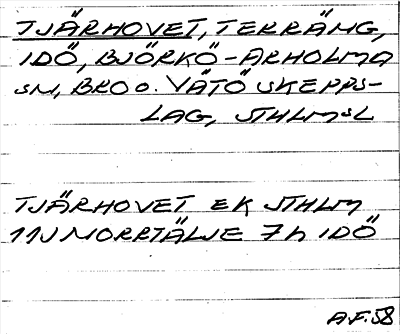 TJÄRHOVET, TERRÄNG,
IDÖ, BJÖRKÖ-ARHOLMA
SN, BRO O. VÄTÖ SKEPPS-
LAG, STHLMSL
TJÄRHOVET EK STHLM
11J NORRTÄLJE 7h IDÖ
A.F. 58